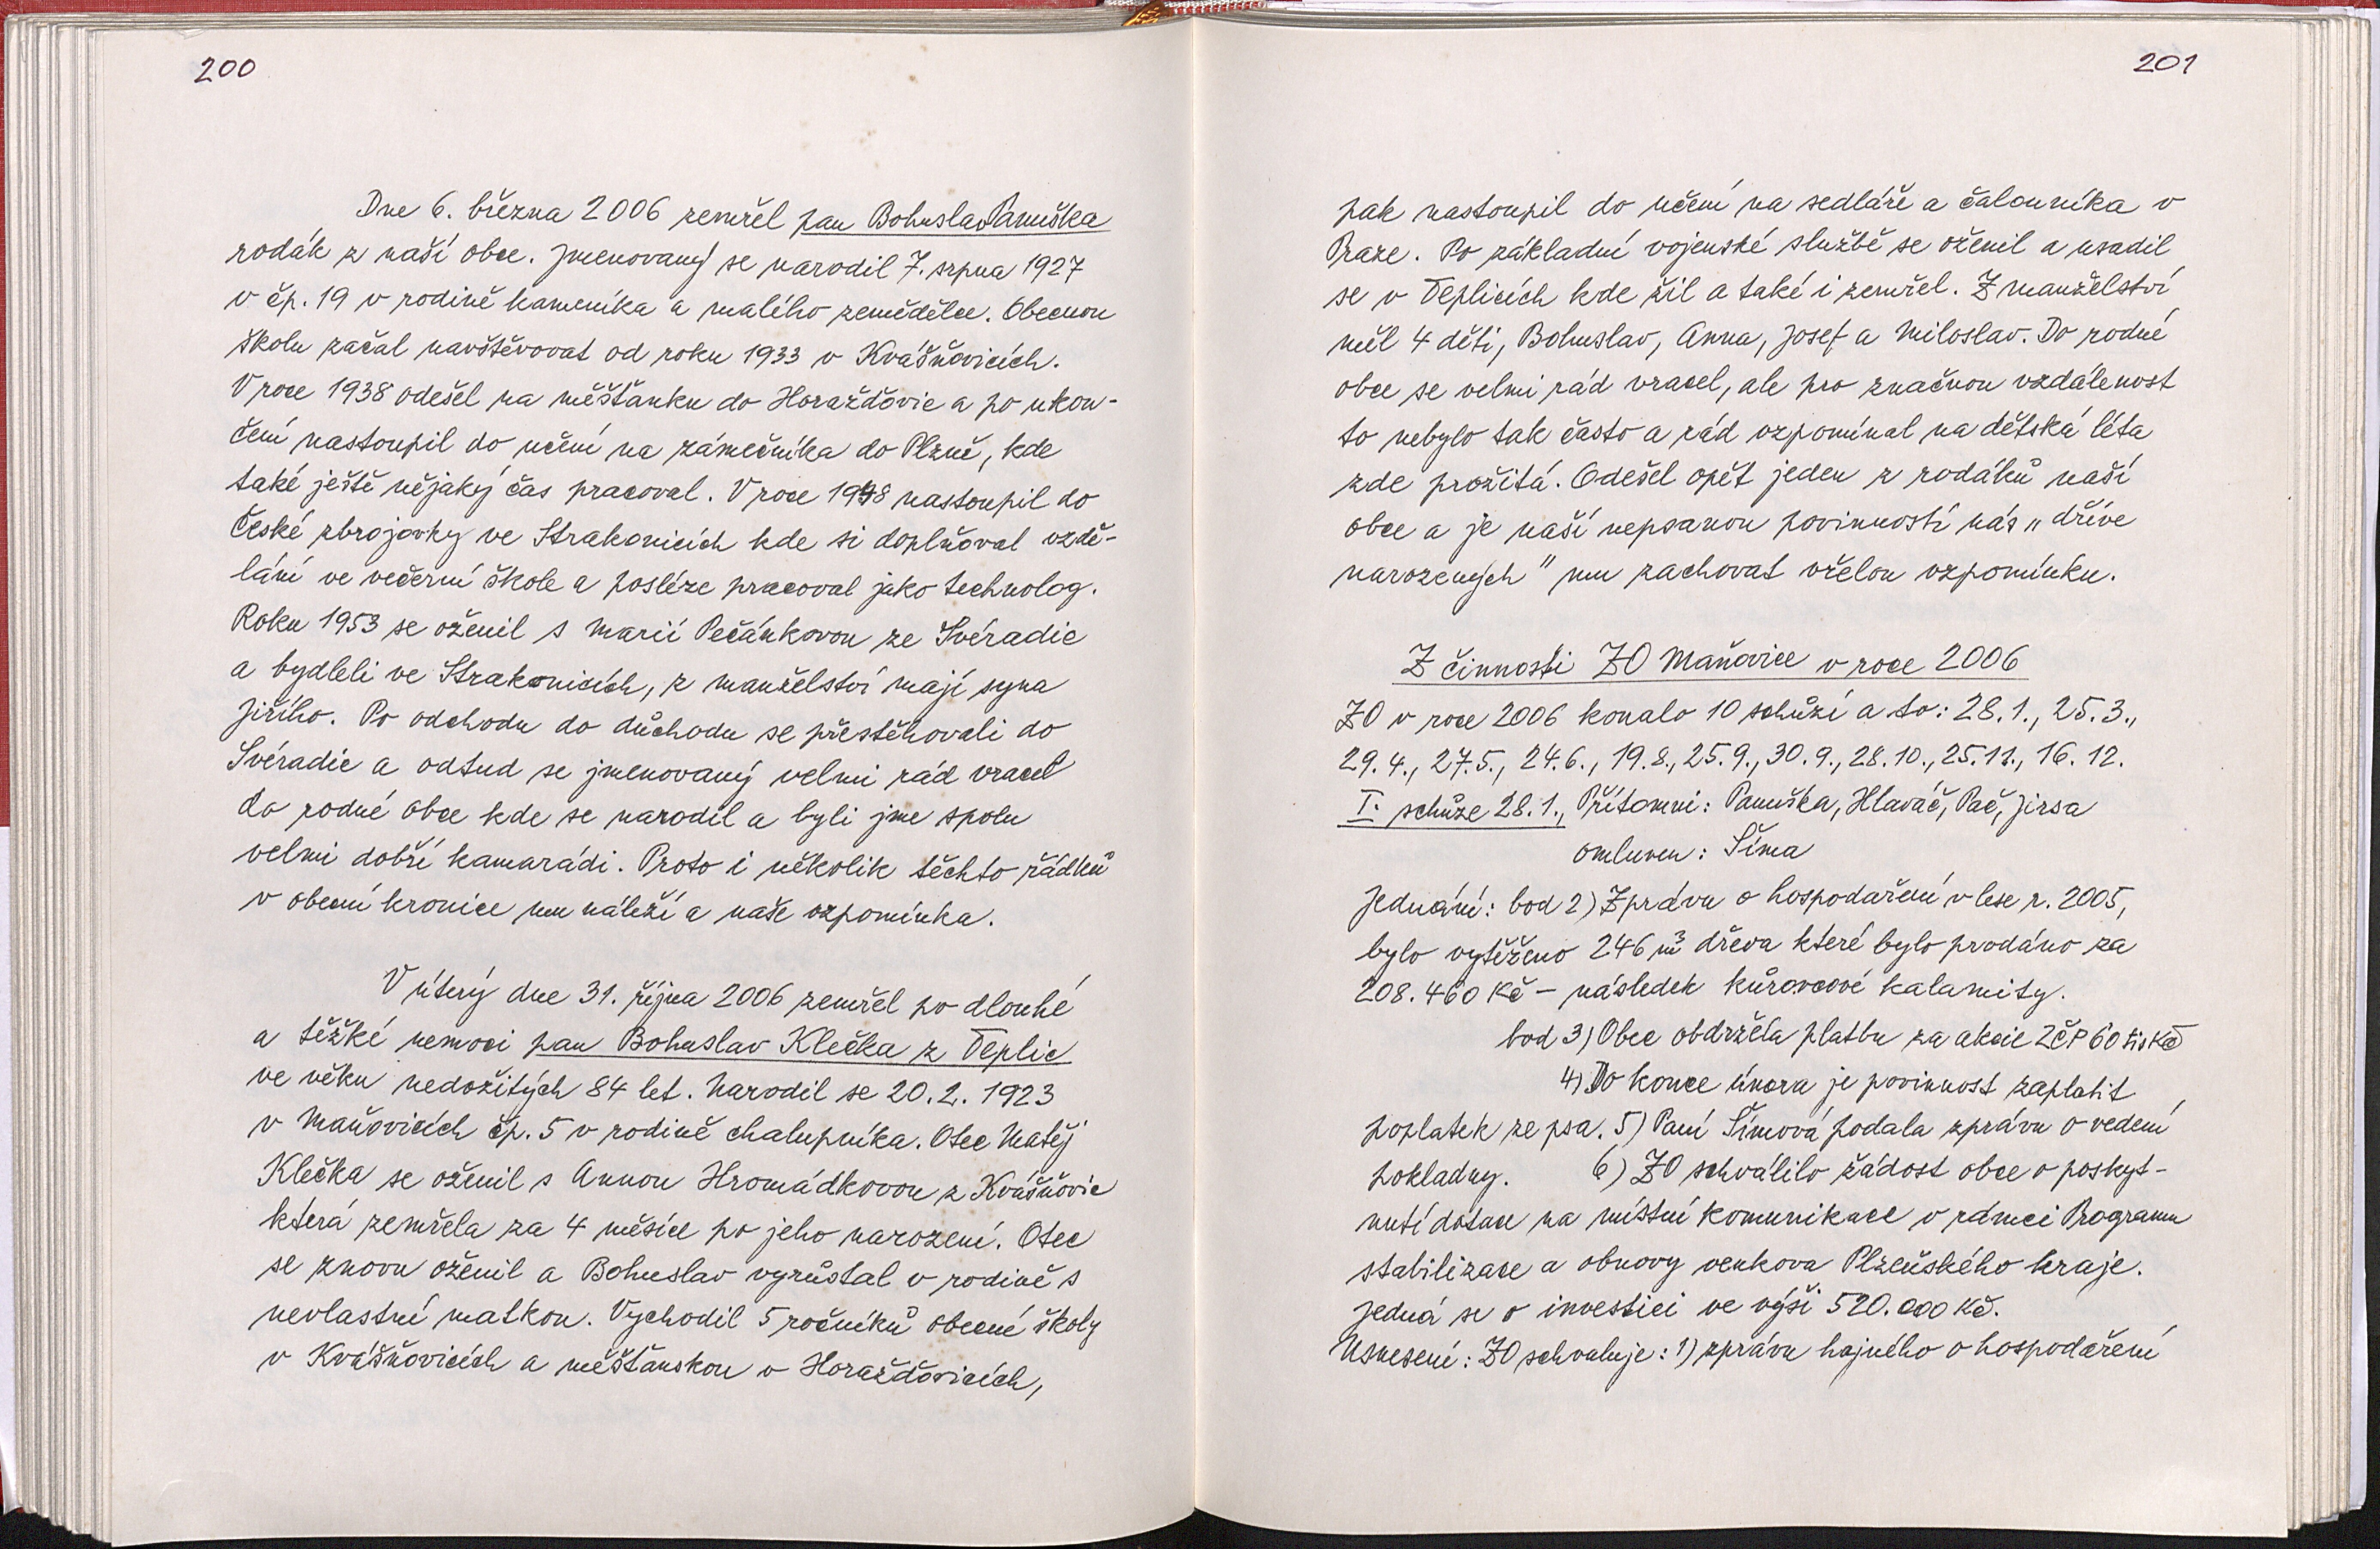 200
Dne 6. března 2006 zemřel pan Bohuslav Panuška
rodák z naší obce. Jmenovaný se narodil 7. srpna 1927
v čp. 19 v rodině kameníka a malého zemědělce. Obecnou
školu začal navštěvovat od roku 1933 v Kvášňovicích.
V roce 1938 odešel na měšťanku do Horažďovic a po ukon-
čení nastoupil do učení na zámečníka do Plzně, kde
také ještě nějaký čas pracoval. V roce 1948 nastoupil do
České zbrojovky ve Strakonicích kde si doplňoval vzdě-
lání ve večerní škole a posléze pracoval jako technolog.
Roku 1953 se oženil s Marií Pečánkovou ze Svéradic
a bydleli ve Strakonicích, z manželství mají syna
Jiřího. Po odchodu do důchodu se přestěhovali do
Svéradic a odtud se jmenovaný velmi rád vracel
do rodné obce kde se narodil a byli jme spolu
velmi dobří kamarádi. Proto i několik těchto řádků
v obecní kronice mu náleží a naše vzpomínka.
V úterý dne 31. října 2006 zemřel po dlouhé
a těžké nemoci pan Bohuslav Klečka z Teplic
ve věku nedožitých 84 let. Narodil se 20. 2. 1923
v Maňovicích čp. 5 v rodině chalupníka. Otec Matěj
Klečka se oženil s Annou Hromádkovou z Kvášňovic
která zemřela za 4 měsíce po jeho narození. Otec
se znovu oženil a Bohuslav vyrůstal v rodině s
nevlastní matkou. Vychodil 5 ročníků obecné školy
v Kvášňovicích a měšťanskou v Horažďovicích,
201
pak nastoupil do učení na sedláře a čalouníka v
Praze. Po základní vojenské službě se oženil a usadil
se v Teplicích kde žil a také i zemřel. Z manželství
měl 4 děti, Bohuslav, Anna, Josef a Miloslav. Do rodné
obce se velmi rád vracel, ale pro značnou vzdálenost
to nebylo tak často a rád vzpomínal na dětská léta
zde prožitá. Odešel opět jeden z rodáků naší
obce a je naší nepsanou povinností nás „ dříve
narozených " mu zachovat vřelou vzpomínku.
Z činnosti ZO Maňovice v roce 2006
ZO v roce 2006 konalo 10 schůzí a to: 28.1., 25.3.,
29.4., 27.5., 24.6., 19.8., 25.9., 30.9., 28.10., 25.11., 16.12.
I. schůze 28.1., Přítomni: Panuška, Hlaváč, Pač, Jirsa
omluven: Šíma
Jednání: bod 2) Zprávu o hospodaření v lese r. 2005,
bylo vytěženo 246 m³ dřeva které bylo prodáno za
208.460 Kč – následek kůrovcové kalamity.
bod 3) Obec obdržela platbu za akcie ZČP 60 tis Kč
4) Do konce února je povinnost zaplatit
poplatek ze psa. 5) Paní Šímová podala zprávu o vedení
pokladny. 6) ZO schválilo žádost obce o poskyt-
nutí dotace na místní komunikace v rámci Programu
stabilizace a obnovy venkova Plzeňského kraje.
Jedná se o investici ve výši 520.000 Kč.
Usnesení: ZO schvaluje: 1) zprávu hajného o hospodaření